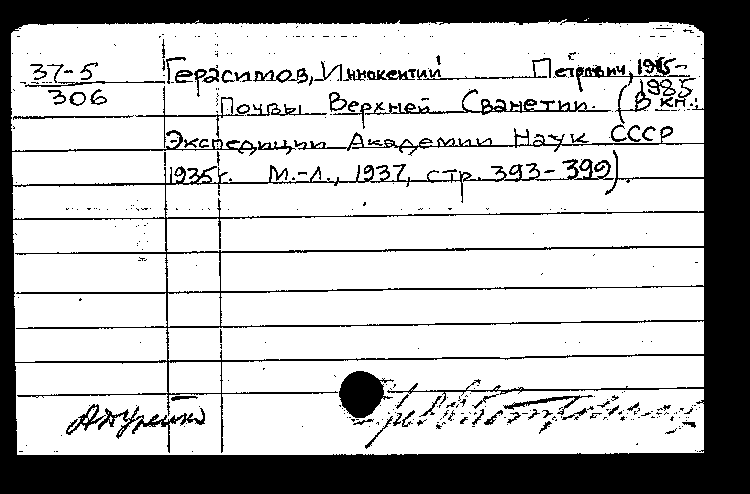 37-5 Герасимов, Иннокентий Петрович, 1905-
306 1985
Почвы Верхней Сванетии. (В кн.:
Экспедиции Академии Наук СССР
1935г. М.-Л., 1937, стр. 393-399).